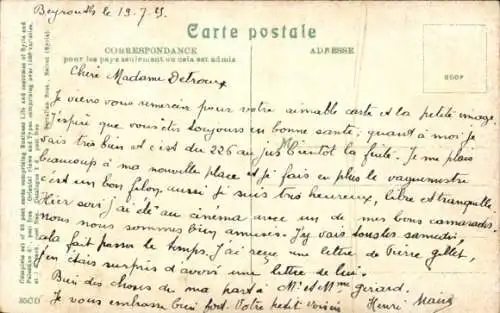 Beyrouth le 19.7.25.
Carte postale
CORRESPONDANCE
pour les pays seulement ou cela est admis
ADRESSE
Chère Madame Detroux
Je viens vous remercier pour votre aimable carte et la petite image.
J'espère que vous êtes toujours en bonne santé; quant à moi je
vais très bien et c'est du 226 au jus bientôt la fuite. Je me plais
beaucoup à ma nouvelle place et je fais en plus le vaguemestre
c'est un bon filon, aussi je suis très heureux, libre et tranquille
Hier soir j'ai été au cinéma avec un de mes bons camarades.
nous nous sommes bien amusés. J'y vais tous les samedis,
cela fait passer le temps. J'ai reçu une lettre de Pierre
j'en étais surpris d'avoir une lettre de lui.
Bien des choses de ma part à Mr et Mme Gérard.
Je vous embrasse bien fort. Votre petit voisin
Henri